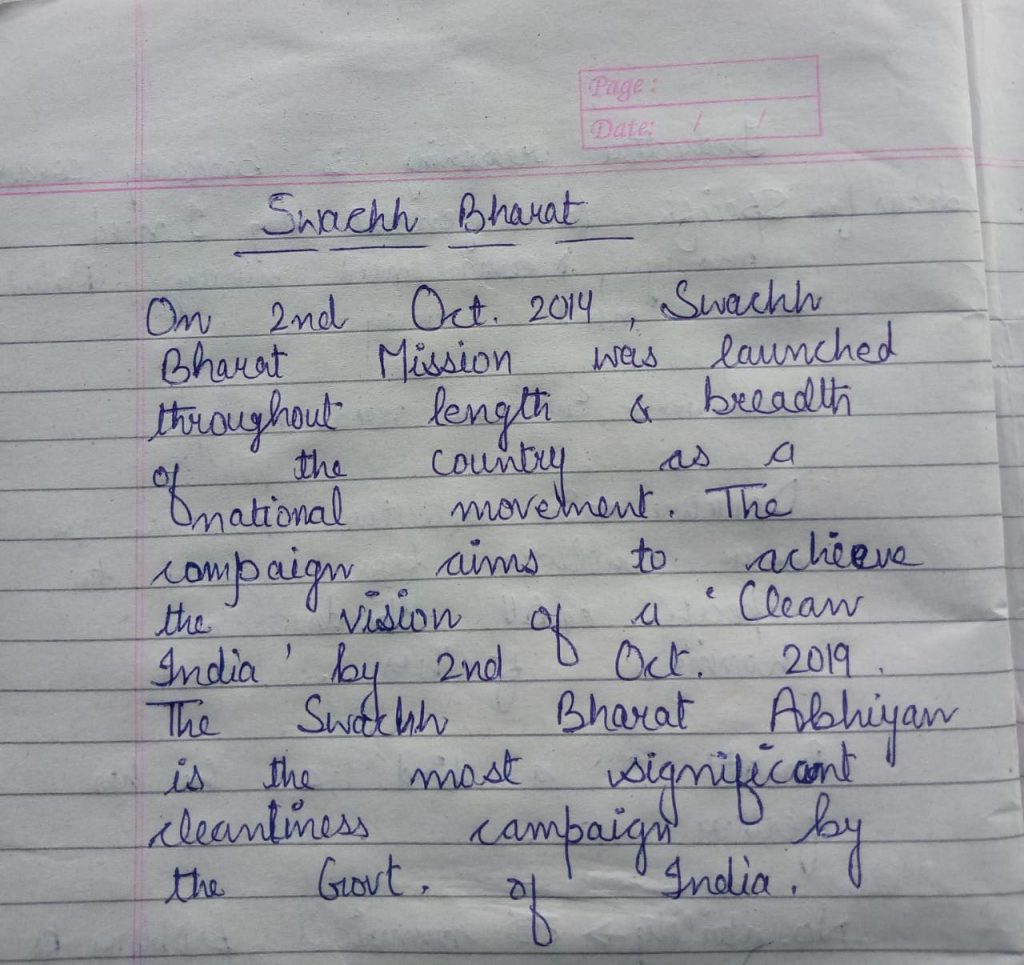 Page:
Date: / /
Swachh Bharat
On 2nd Oct. 2014, Swachh
Bharat Mission was launched
throughout length & breadth
of the country as a
national movement. The
campaign aims to achieve
the vision of a 'Clean
India' by 2nd Oct. 2019.
The Swachh Bharat Abhiyan
is the most significant
cleanliness campaign by
the Govt. of India.